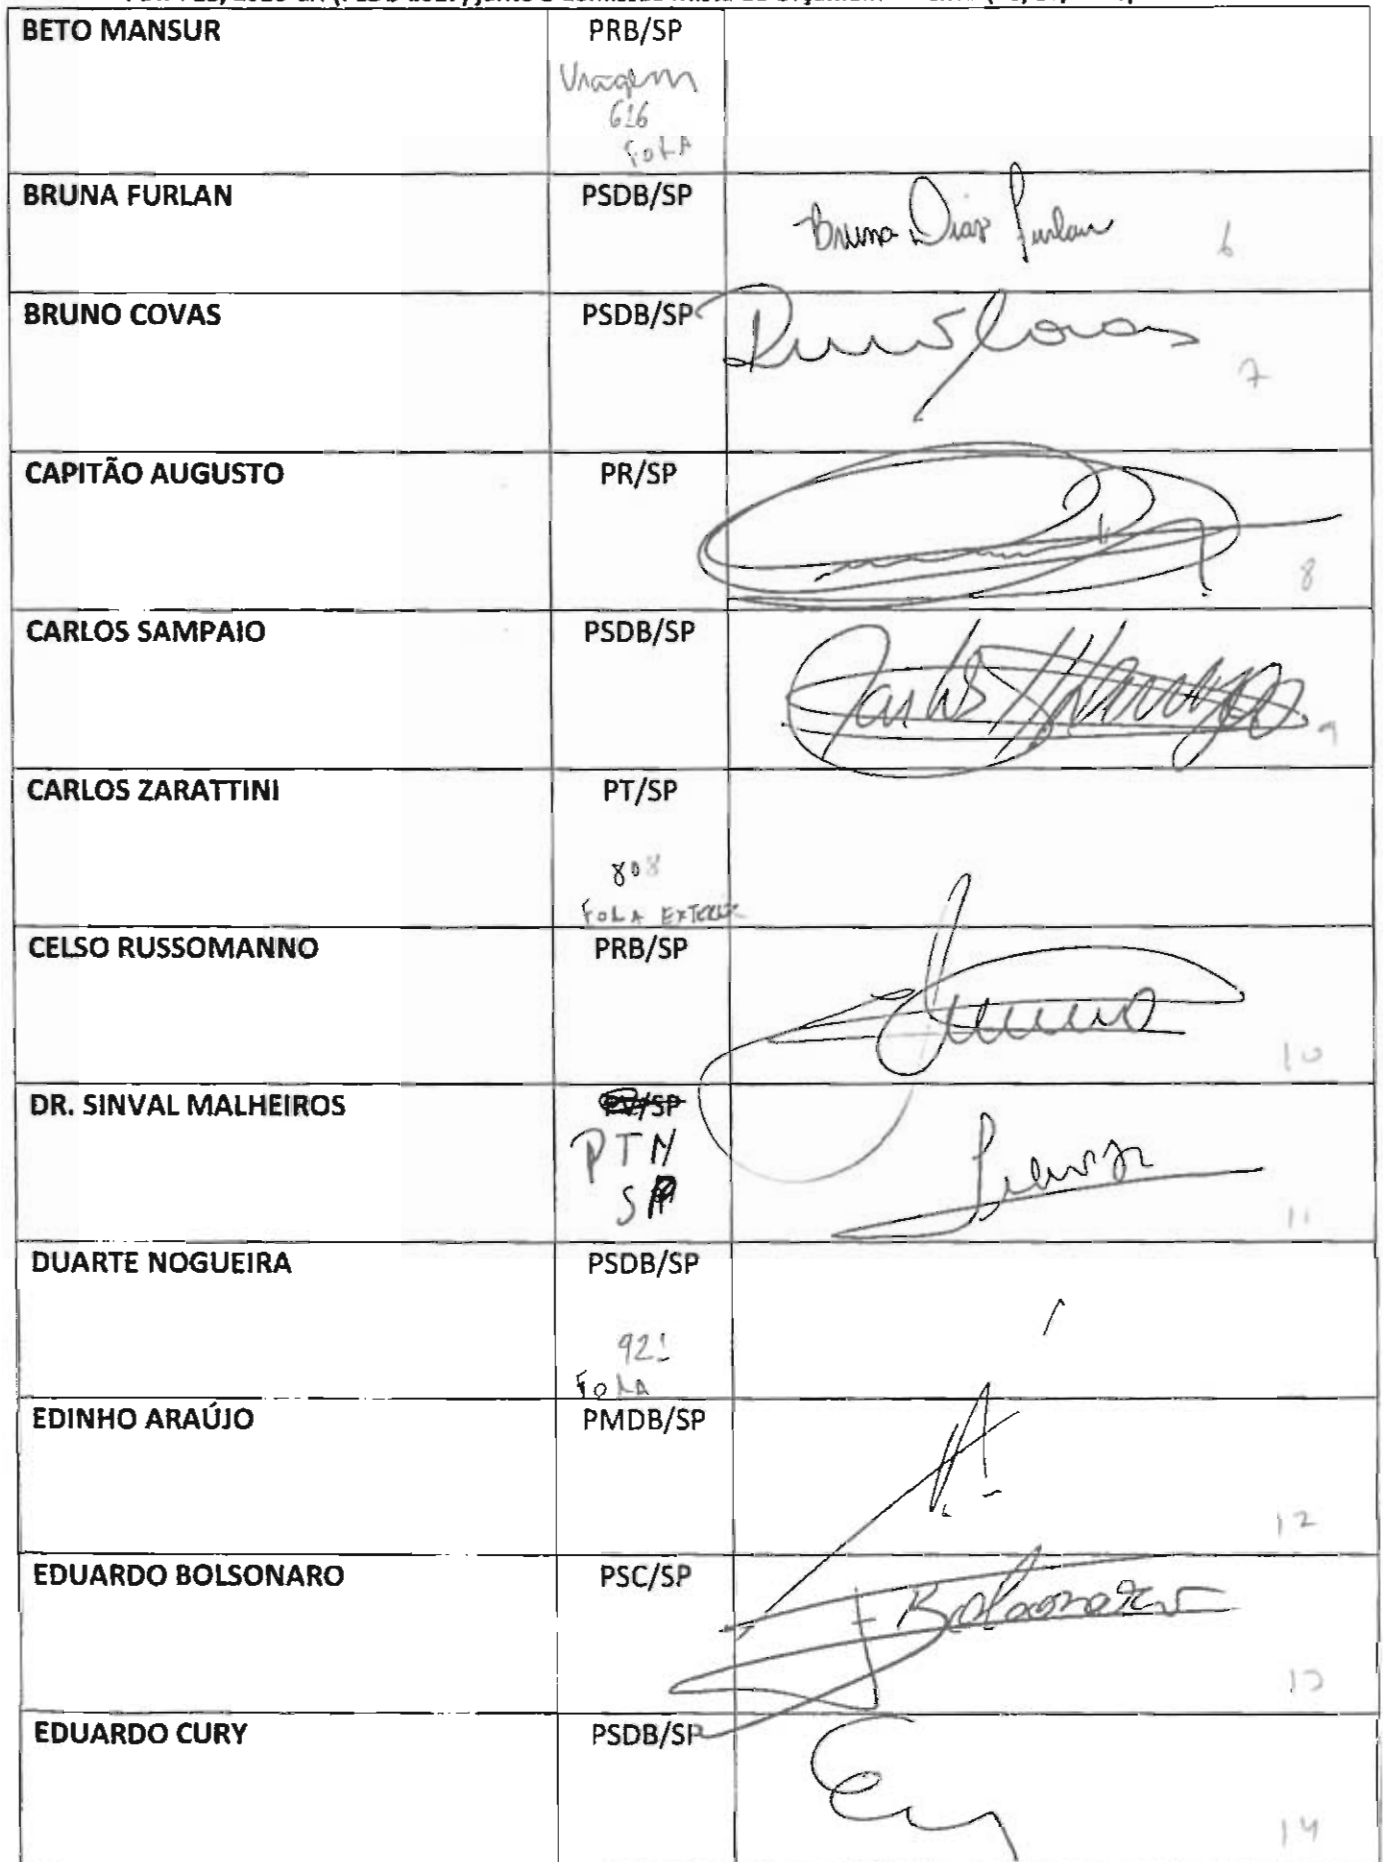 BETO MANSUR PRB/SP
Viagem
616
FORA
BRUNA FURLAN PSDB/SP Bruna Dias Furlan 6
BRUNO COVAS PSDB/SP 7
CAPITÃO AUGUSTO PR/SP 8
CARLOS SAMPAIO PSDB/SP Carlos Sampaio 9
CARLOS ZARATTINI PT/SP
808
FORA EXTERIOR
CELSO RUSSOMANNO PRB/SP
10
DR. SINVAL MALHEIROS PV/SP
PTN
SP
11
DUARTE NOGUEIRA PSDB/SP
921
FORA
EDINHO ARAÚJO PMDB/SP
12
EDUARDO BOLSONARO PSC/SP Bolsonaro
13
EDUARDO CURY PSDB/SP
14